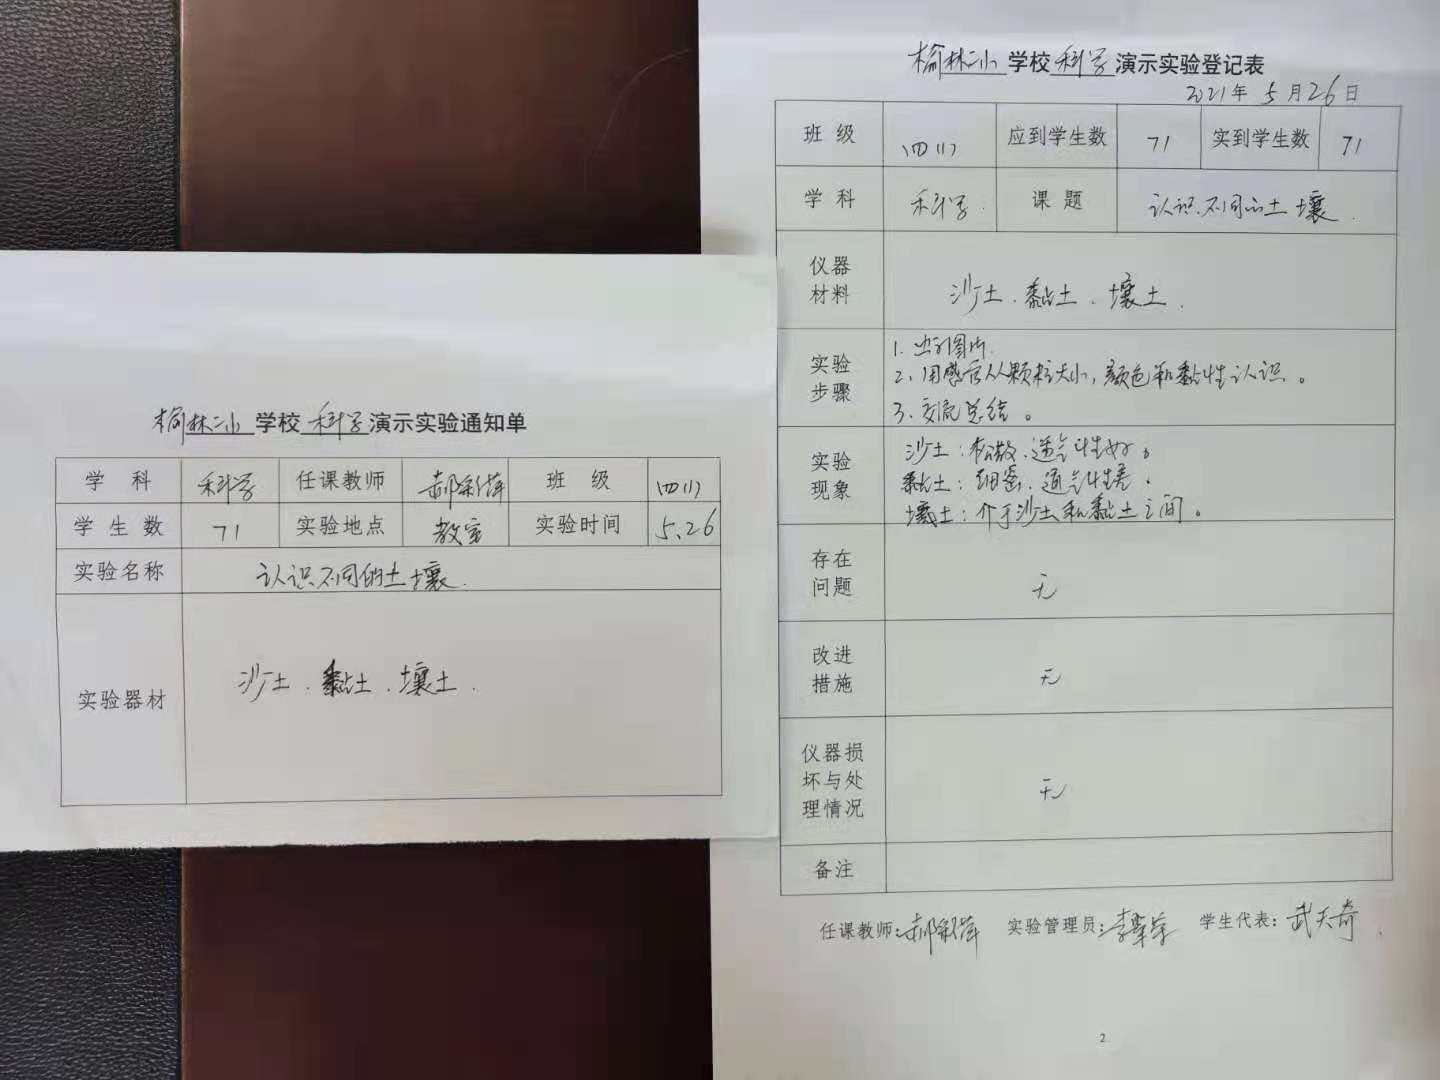 榆林二小学校科学演示实验通知单
学 科 科学 任课教师 郝彩萍 班 级 四(1)
学生数 71 实验地点 教室 实验时间 5.26
实验名称 认识不同的土壤.
实验器材 沙土.黏土.壤土.
榆林二小学校科学演示实验登记表
2021年 5月26日
班 级 四(1) 应到学生数 71 实到学生数 71
学 科 科学. 课 题 认识不同的土壤.
仪器材料 沙土.黏土.壤土.
实验步骤
1.出示图片.
2.用感官从颗粒大小,颜色和黏性认识。
3.交流总结。
实验现象
沙土:松散.透气性好。
黏土:细密.通气性差。
壤土:介于沙土和黏土之间。
存在问题 无
改进措施 无
仪器损坏与处理情况 无
备注
任课教师:郝彩萍 实验管理员:李 学生代表:武天奇.
2